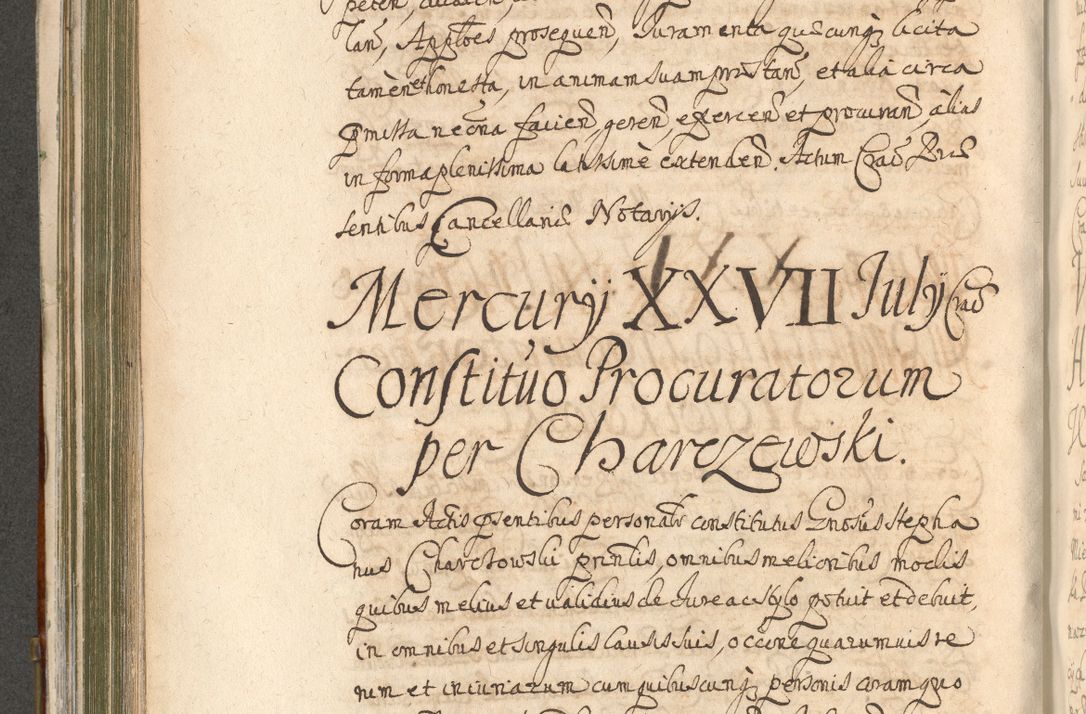 lan, Applões prosequen, Iuramenta quęcunq licita
tamèn et honesta, in animam suam pręstan, et alia circa
pmissa necṙna facien, geren, exercen et procuran, àlias
in forma plenissima latissimè extenden. Actum Crac Prę
sentibus Cancellarię Notarijs.
Mercurij XXVII Iulij Crac
Constituo Procuratorum
per Charczewski.
Coram Actis psentibus personalr constitutus Gnosus Stepha
nus Charczowski prinlis, omnibus melioribus modis
quibus melius et validius de Iure ac stylo potuit et debuit,
in omnibus et singulis causis suis, occõne quarumuis re
rum et iniuriarum cum quibuscunq personis coram quo